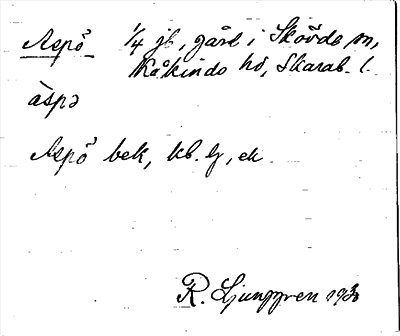 Aspö 1/4 jb, gård i Skövde sn,
Kåkinds hd, Skarab. l.
àspə
Aspö bek, kb. lj, ek
R. Ljunggren 1930